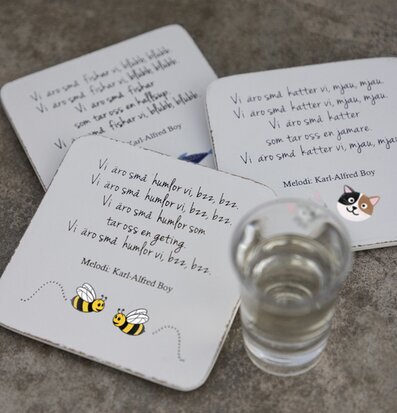 Vi äro små fiskar vi, blubb, blubb.
Vi äro små fiskar vi, blubb, blubb.
Vi äro små fiskar
som tar oss en halfsup.
Vi äro små fiskar vi, blubb, blubb.
Karl-Alfred Boy
Vi äro små katter vi, mjau, mjau.
Vi äro små katter vi, mjau, mjau.
Vi äro små katter
som tar oss en jamare.
Vi äro små katter vi, mjau, mjau.
Melodi: Karl-Alfred Boy
Vi äro små humlor vi, bzz, bzz.
Vi äro små humlor vi, bzz, bzz.
Vi äro små humlor som
tar oss en geting.
Vi äro små humlor vi, bzz, bzz.
Melodi: Karl-Alfred Boy